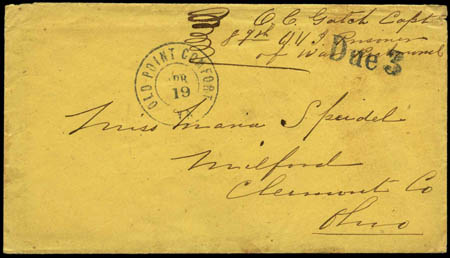 O. C. Gatch Capt
89th O V I Prisoner
of War
Due 3
OLD POINT COMFORT
APR
19
Miss Maria Speidel
Milford
Clermont Co
Ohio